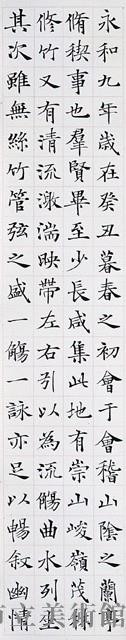 永和九年歲在癸丑暮春之初會于會稽山陰之蘭亭
脩稧事也羣賢畢至少長咸集此地有崇山峻嶺茂林
修竹又有清流激湍映帶左右引以為流觴曲水列坐
其次雖無絲竹管弦之盛一觴一詠亦足以暢敘幽情
立美術館